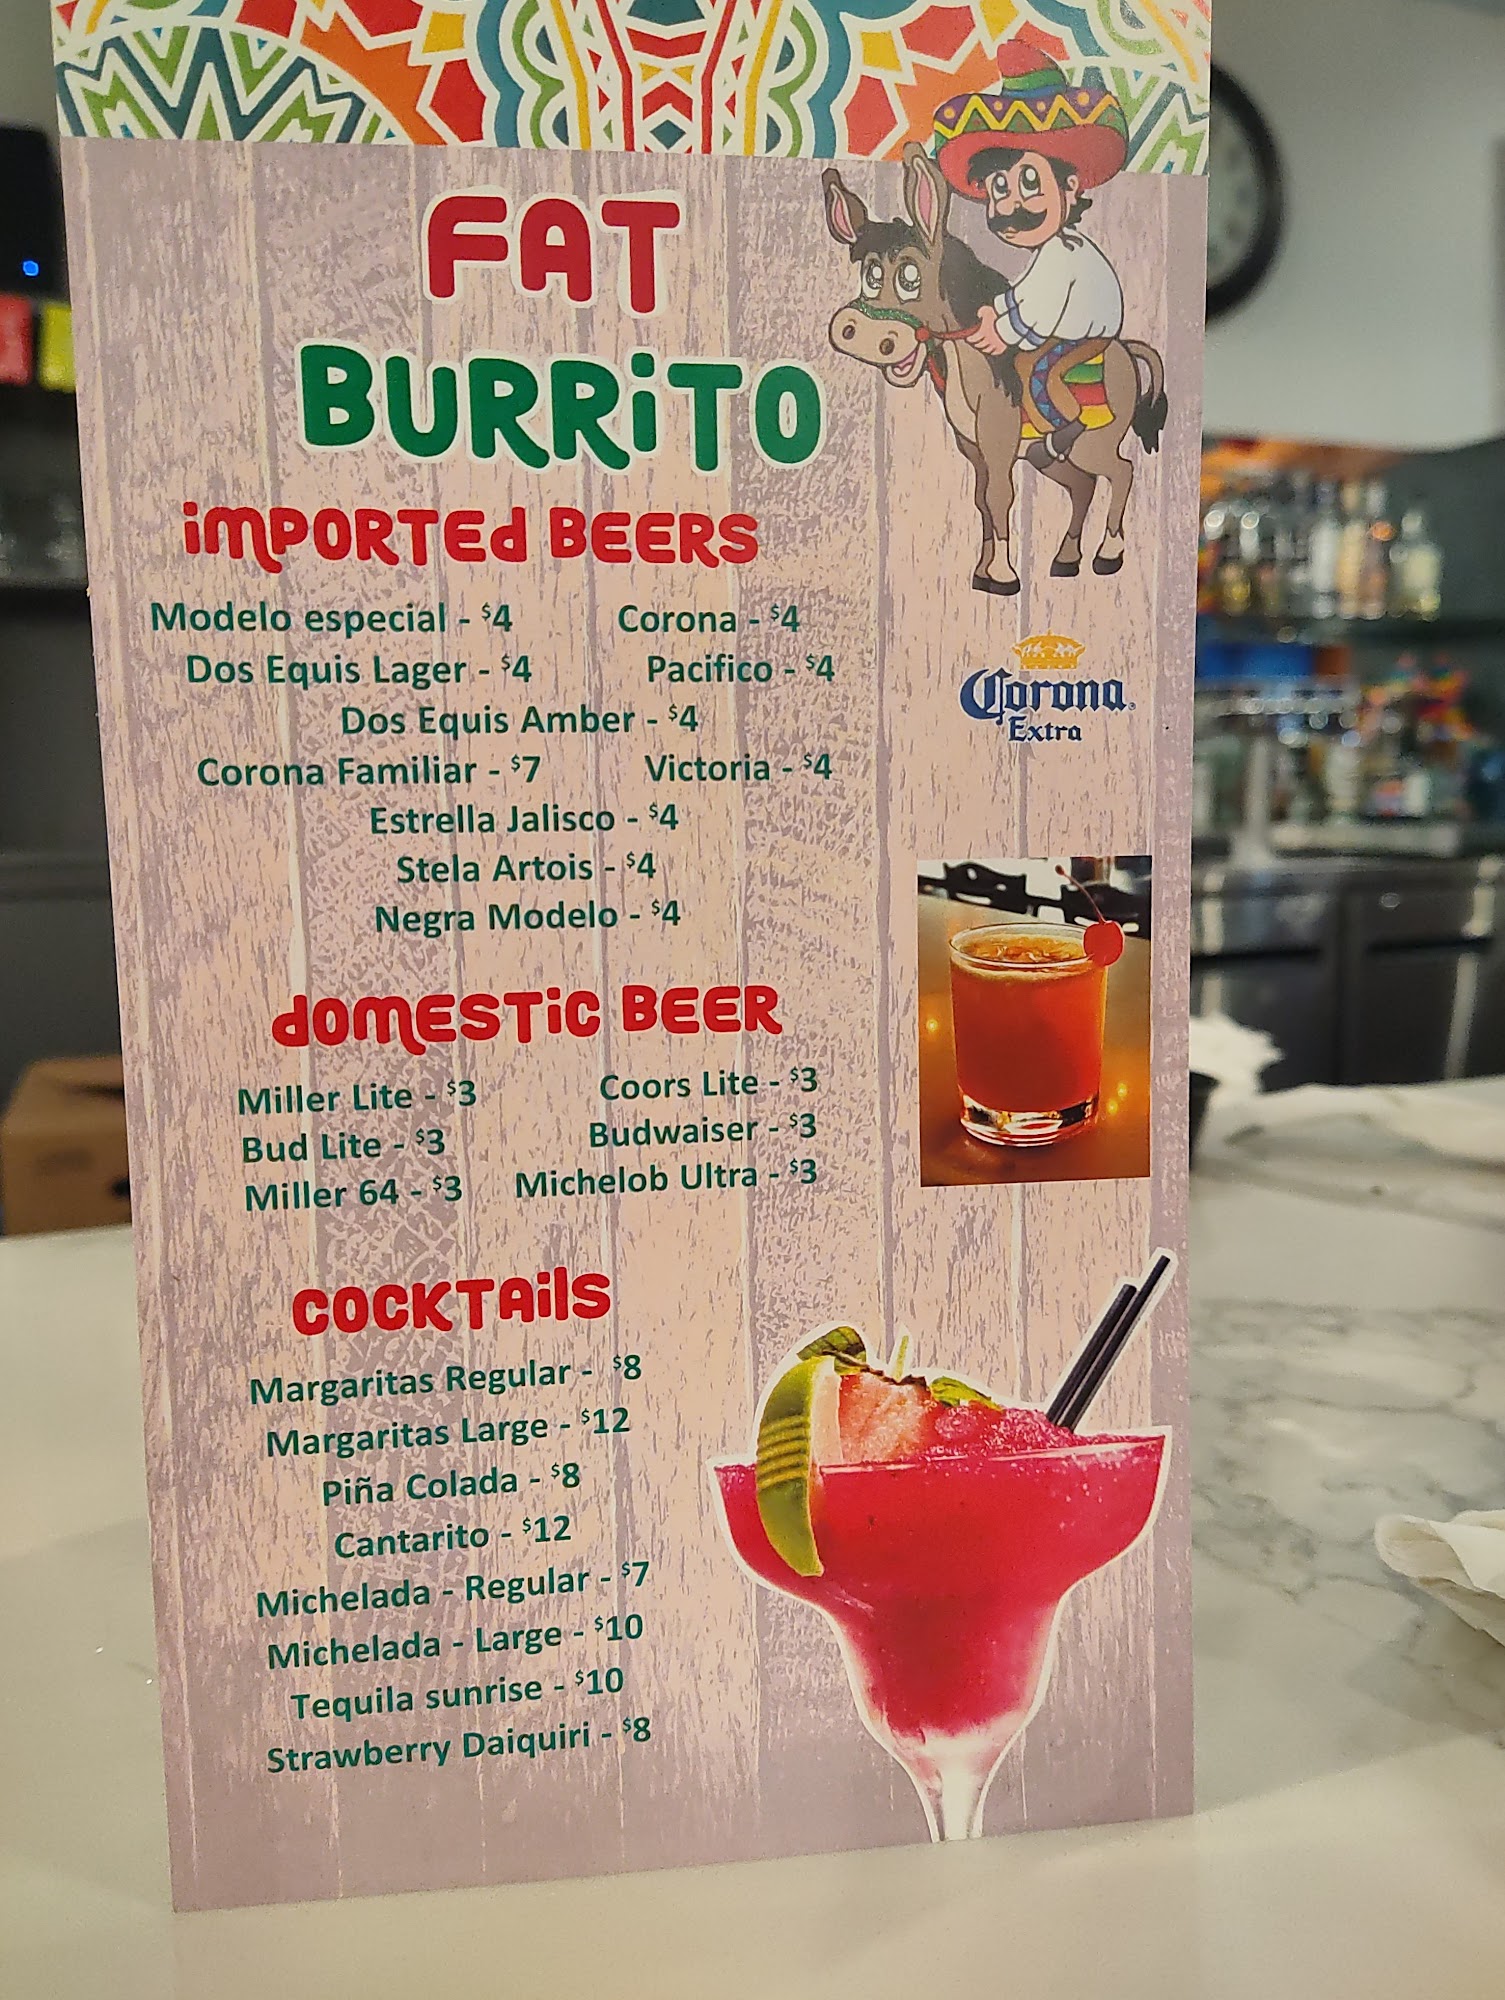 FAT
BURRiTO
iMPORTEd BEERS
Modelo especial - $4 Corona - $4
Dos Equis Lager - $4 Pacifico - $4
Dos Equis Amber - $4
Corona Familiar - $7 Victoria - $4
Estrella Jalisco - $4
Stela Artois - $4
Negra Modelo - $4
Corona
Extra
dOMESTiC BEER
Miller Lite - $3 Coors Lite - $3
Bud Lite - $3 Budwaiser - $3
Miller 64 - $3 Michelob Ultra - $3
COCKTAilS
Margaritas Regular - $8
Margaritas Large - $12
Piña Colada - $8
Cantarito - $12
Michelada - Regular - $7
Michelada - Large - $10
Tequila sunrise - $10
Strawberry Daiquiri - $8